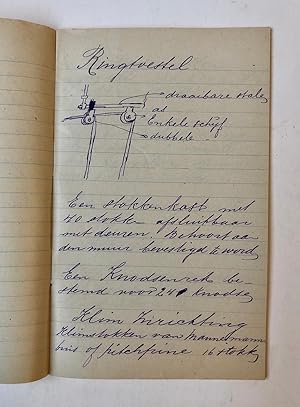 Ringtoestel
draaibare stalen
as
Enkele schijf
dubbele
Een stokkenkast met
40 stokken afsluitbaar
met deuren. Behoort aan
den muur bevestigd te word
Een Knodsenrek be-
stemd voor 24 knodse
Klim Inrichting
Klimstokken van Mannesmann
buis of pitchpine 16 stokk